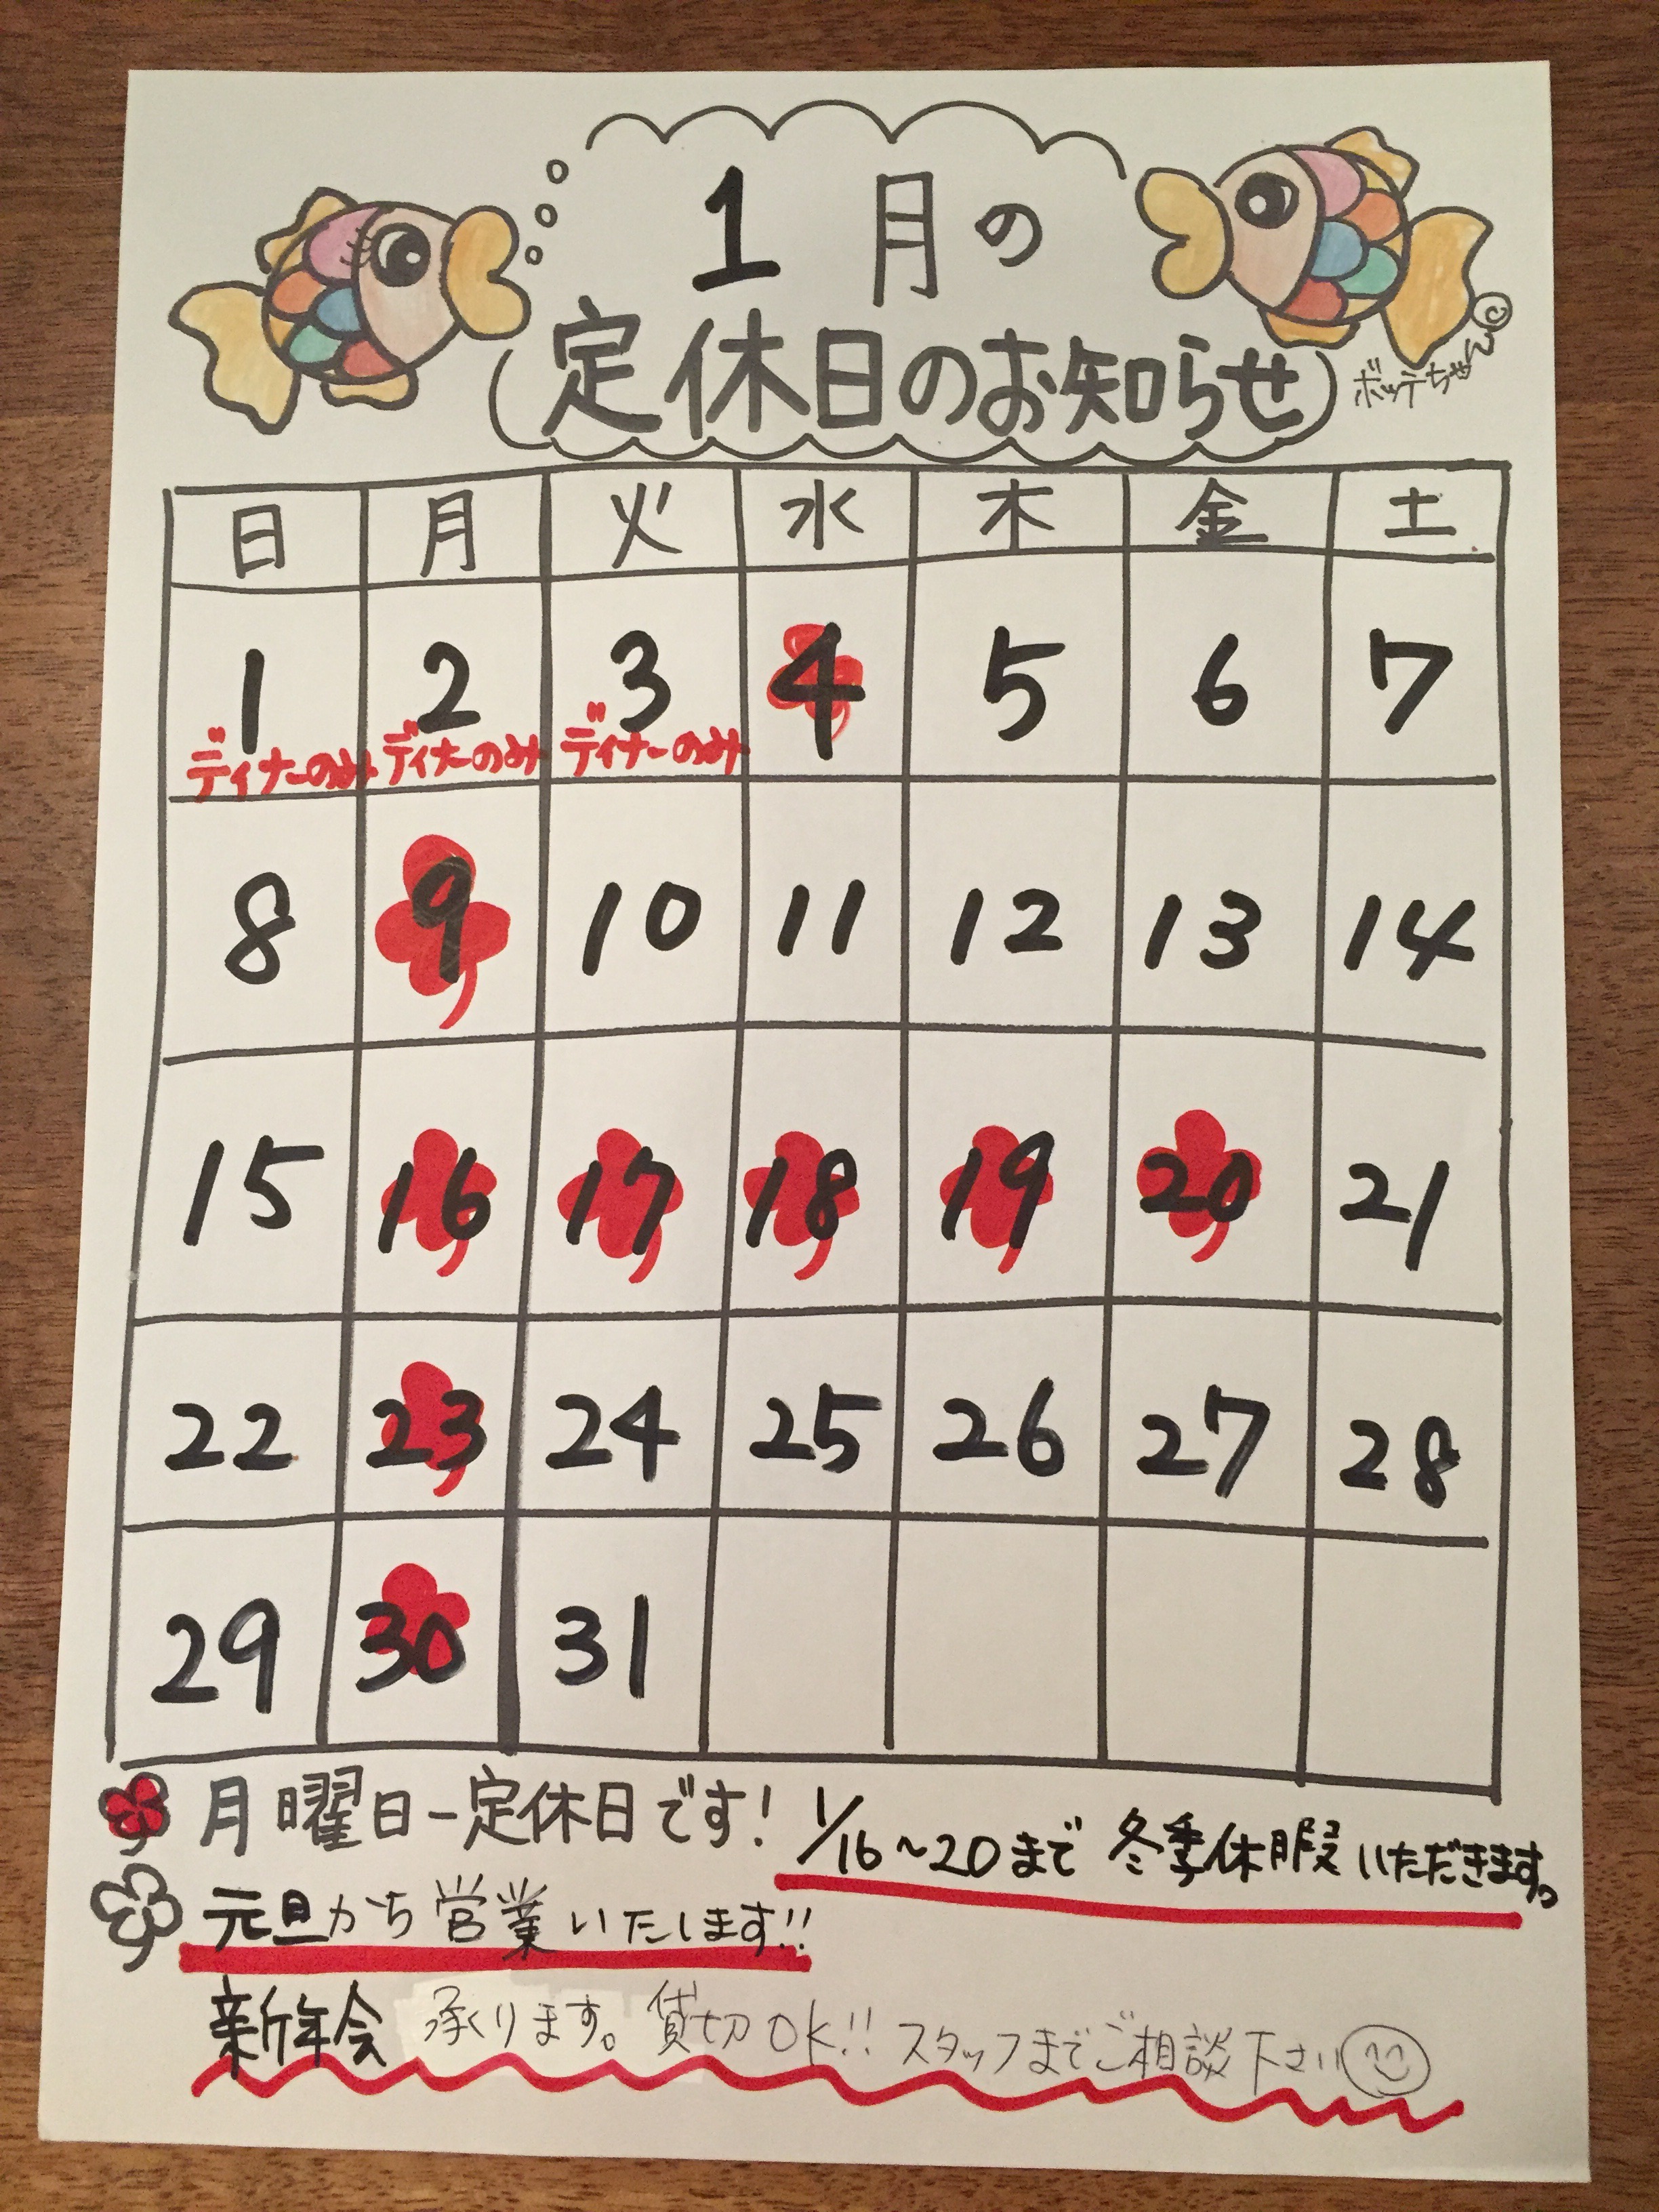 1月の
定休日のお知らせ
ボッテちゃん
日 月 火 水 木 金 土
1 2 3 4 5 6 7
ディナーのみ ディナーのみ ディナーのみ
8 9 10 11 12 13 14
15 16 17 18 19 20 21
22 23 24 25 26 27 28
29 30 31
月曜日-定休日です! 1/16~20まで 冬季休暇いただきます。
元旦から営業いたします!!
新年会 承ります。貸切OK!! スタッフまでご相談下さい